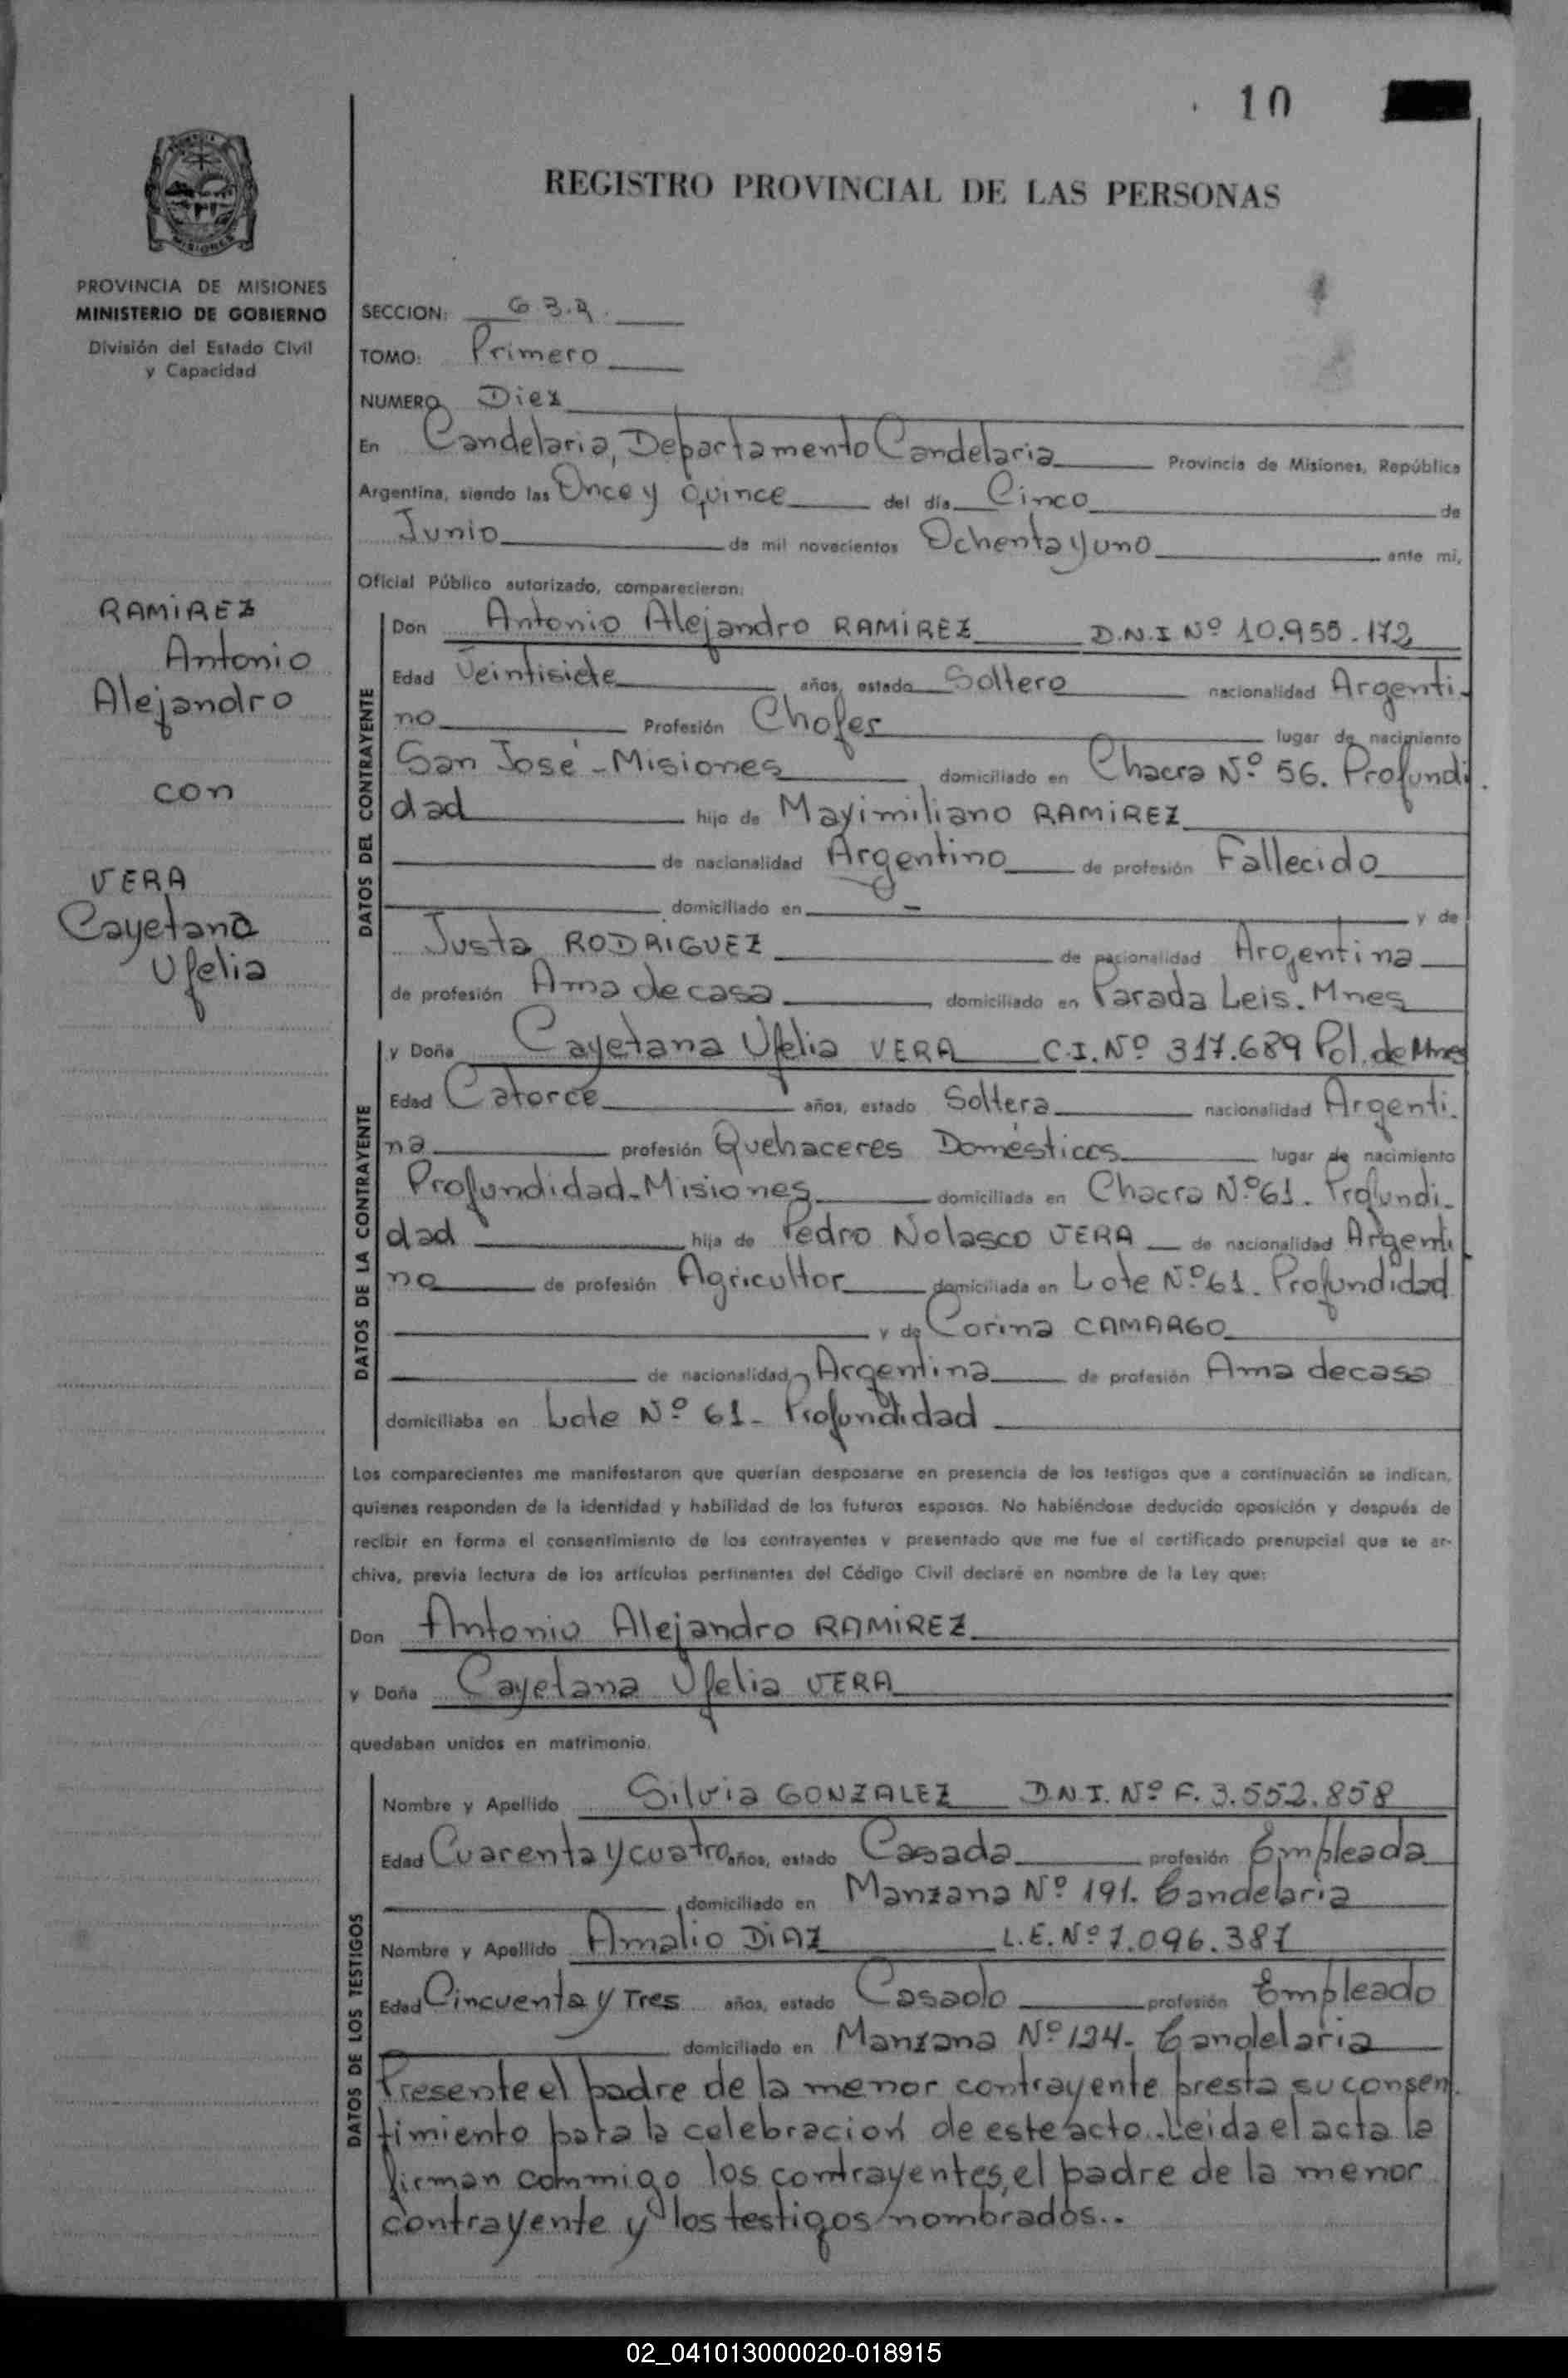 10
REGISTRO PROVINCIAL DE LAS PERSONAS
MISIONES
PROVINCIA DE MISIONES
MINISTERIO DE GOBIERNO
División del Estado Civil
y Capacidad
RAMIREZ
Antonio
Alejandro
con
VERA
Cayetana
Ufelia
SECCION:
TOMO: Primero
NUMERO Diez
En Candelaria, Departamento Candelaria Provincia de Misiones, República
Argentina, siendo las Once y quince del día Cinco de
Junio de mil novecientos Ochenta y uno ante mi,
Oficial Público autorizado, comparecieron:
DATOS DEL CONTRAYENTE
Don Antonio Alejandro RAMIREZ D.N.I Nº 10.955.172
Edad Veintisiete años, estado Soltero nacionalidad Argenti-
no Profesión Chofer lugar de nacimiento
San José - Misiones domiciliado en Chacra Nº 56. Profundi
dad hijo de Mayimiliano RAMIREZ
de nacionalidad Argentino de profesión Fallecido
domiciliado en - y de
Justa RODRIGUEZ de nacionalidad Argentina
de profesión Ama de casa, domiciliado en Parada Leis. Mnes
DATOS DE LA CONTRAYENTE
y Doña Cayetana Ufelia VERA C.I. Nº 317.689 Pol. de Mnes
Edad Catorce años, estado Soltera nacionalidad Argenti-
na profesión Quehaceres Domésticos lugar de nacimiento
Profundidad-Misiones domiciliada en Chacra Nº 61. Profundi-
dad hija de Pedro Nolasco VERA de nacionalidad Argenti
no de profesión Agricultor domiciliada en Lote Nº 61. Profundidad
y de Corina CAMARGO
de nacionalidad Argentina de profesión Ama de casa
domiciliaba en Lote Nº 61- Profundidad
Los comparecientes me manifestaron que querían desposarse en presencia de los testigos que a continuación se indican,
quienes responden de la identidad y habilidad de los futuros esposos. No habiéndose deducido oposición y después de
recibir en forma el consentimiento de los contrayentes y presentado que me fue el certificado prenupcial que se ar-
chiva, previa lectura de los artículos pertinentes del Código Civil declaré en nombre de la Ley que:
Don Antonio Alejandro RAMIREZ
y Doña Cayetana Ufelia VERA
quedaban unidos en matrimonio.
DATOS DE LOS TESTIGOS
Nombre y Apellido Silvia GONZALEZ D.N.I. Nº F. 3.552.858
Edad Cuarenta y cuatro años, estado Casada profesión Empleada
domiciliado en Manzana Nº 191. Candelaria
Nombre y Apellido Amalio DIAZ L.E. Nº 7.096.387
Edad Cincuenta y Tres años, estado Casado profesión Empleado
domiciliado en Manzana Nº 124- Candelaria
Presente el padre de la menor contrayente presta su consen
timiento para la celebracion de este acto.. Leida el acta la
firman commigo los contrayentes, el padre de la menor
contrayente y los testigos nombrados..
02_041013000020-018915